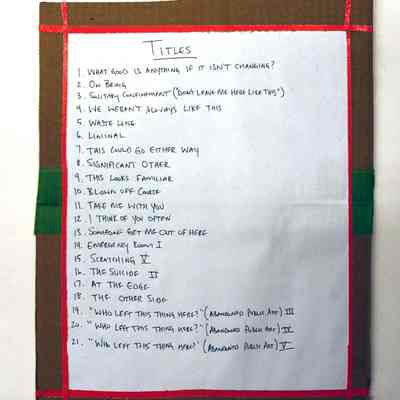 TITLES
1. WHAT GOOD IS ANYTHING IF IT ISN'T CHANGING?
2. ON BEING
3. SOLITARY CONFINEMENT ("DON'T LEAVE ME HERE LIKE THIS")
4. WE WEREN'T ALWAYS LIKE THIS
5. WASTE LINE
6. LIMINAL
7. THIS COULD GO EITHER WAY
8. SIGNIFICANT OTHER
9. THIS LOOKS FAMILIAR
10. BLOWN OFF COURSE
11. TAKE ME WITH YOU
12. I THINK OF YOU OFTEN
13. SOMEONE GET ME OUT OF HERE
14. EMERGENCY ROOM I
15. SCRATCHING V
16. THE SUICIDE II
17. AT THE EDGE
18. THE OTHER SIDE
19. "WHO LEFT THIS THING HERE?" (ABANDONED PUBLIC ART) III
20. "WHO LEFT THIS THING HERE?" (ABANDONED PUBLIC ART) IV
21. "WHO LEFT THIS THING HERE?" (ABANDONED PUBLIC ART) V